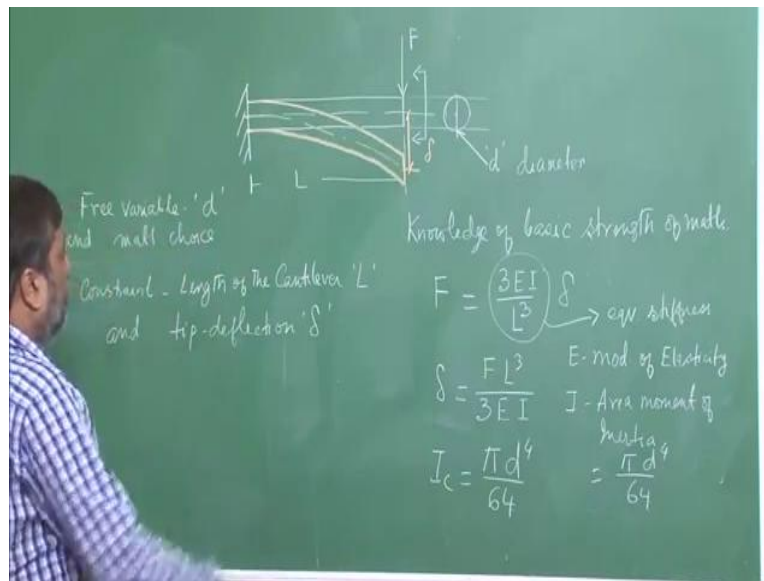 F
δ
'd' diameter
L
Free variable - 'd'
and matl choice
Constraint - Length of the Cantilever 'L'
and tip-deflection 'δ'
Knowledge of basic strength of matls.
F = 3EI/L³ δ
eqv stiffness
δ = FL³/3EI
E - mod of Elasticity
I - Area moment of
Inertia
= πd⁴/64
I_c = πd⁴/64